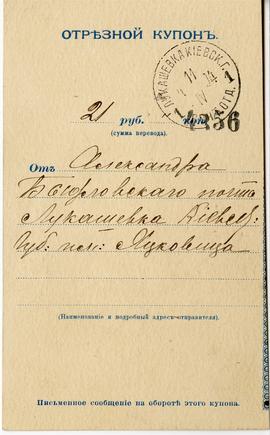 ОТРѢЗНОЙ КУПОНЪ.
ЛУКАШЕВКА КІЕВСК.Г.
11 4 14
ПОЧТ. ОТД. 1
21 руб. коп.
4236
(сумма перевода).
Отъ Александра
почта
Лукашевка Кіевск.
Губ:
(Наименованіе и подробный адресъ-отправителя).
Письменное сообщеніе на оборотѣ этого купона.